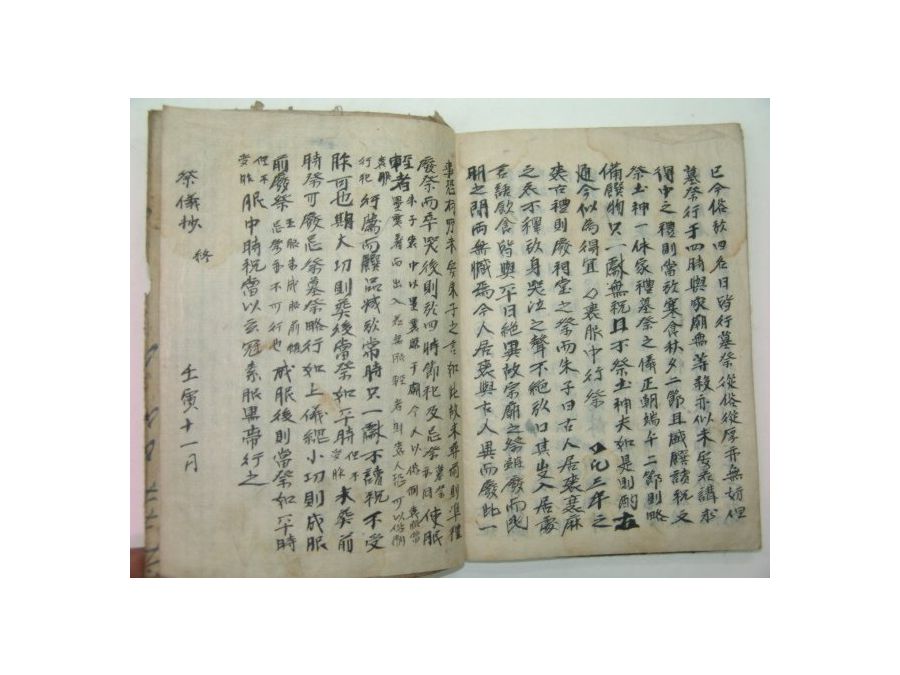 已今俗於四名日皆行墓祭從俗從厚亦無妨但
墓祭行于四時與家廟無等殺亦似未安若講求
得中之禮則當於寒食秋夕二節且盛饌讀祝文
祭土神一依家禮墓祭之儀正朝端午二節則略
備饌物只一獻無祝且不祭土神夫如是則酌古
通今似為得宜 喪服中行祭 三年之
喪古禮則廢祠堂之祭而朱子曰古人居喪衰麻
之衣不釋於身哭泣之聲不絶於口其出入居處
言語飲食皆與平日絶異故宗廟之祭雖廢而幽
明之間兩無憾焉今人居喪與古人異而廢此一
事恐有所未安朱子之言如此故未葬前則準禮
廢祭而卒哭後則於四時節祀及忌祭墓祭亦同使服
輕者朱子喪中以墨衰薦于廟今人以俗制喪服當墨衰著而出入若無服輕者則喪人恐可以俗制
喪服行祀行薦而饌品減於常時只一獻不讀祝不受
胙可也期大功則葬後當祭如平時但不受胙未葬前
時祭可廢忌祭墓祭略行如上儀緦小功則成服
前廢祭五服未成服前雖忌祭亦不可行也成服後則當祭如平時
但不受胙服中時祀當以玄冠素服黑帶行之
祭儀抄 終 壬寅十一月